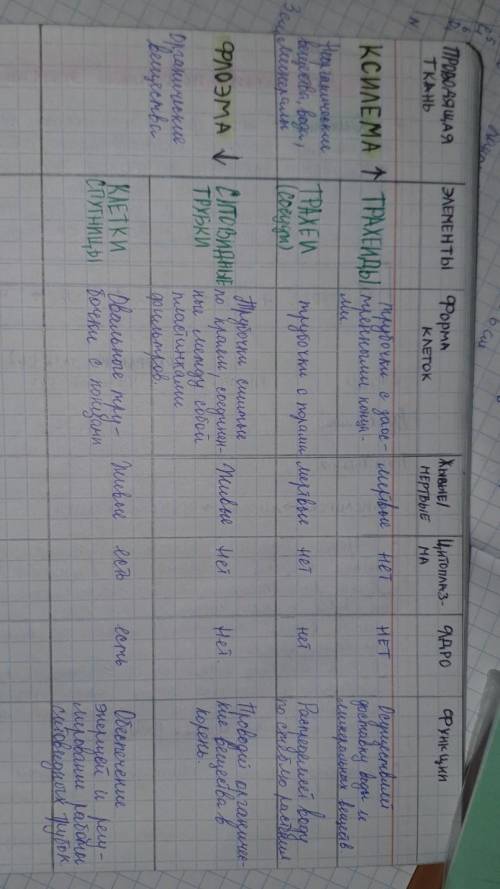 ПРОВОДЯЩАЯ
ТКАНЬ
ЭЛЕМЕНТЫ
ФОРМА
КЛЕТОК
ЖИВЫЕ/
МЕРТВЫЕ
ЦИТОПЛАЗ-
МА
ЯДРО
ФУНКЦИИ
КСИЛЕМА ↑
Неорганические
вещества, вода,
минералы
ТРАХЕИДЫ
трубочки с заос-
тренными конца-
ми
мертвые
НЕТ
НЕТ
Осуществляй
доставку воды и
минеральных веществ
ТРАХЕИ
(сосуды)
трубочки с порами
мертвые
НЕТ
нет
Распределяей воду
по стеблю растения
ФЛОЭМА ↓
Органические
вещества
СИТОВИДНЫЕ
ТРУБКИ
Трубочки сшитые
по краям, соединен-
ные между собой
пластинками
фильтров.
Живые
Нет
Нет
Проводяй органичес-
кие вещества в
корень.
КЛЕТКИ
СПУТНИЦЫ
Овальные тру-
бочки с
Живые
есть
есть
Обеспечение
энергией и регу-
лирование работы
ситовидных трубок